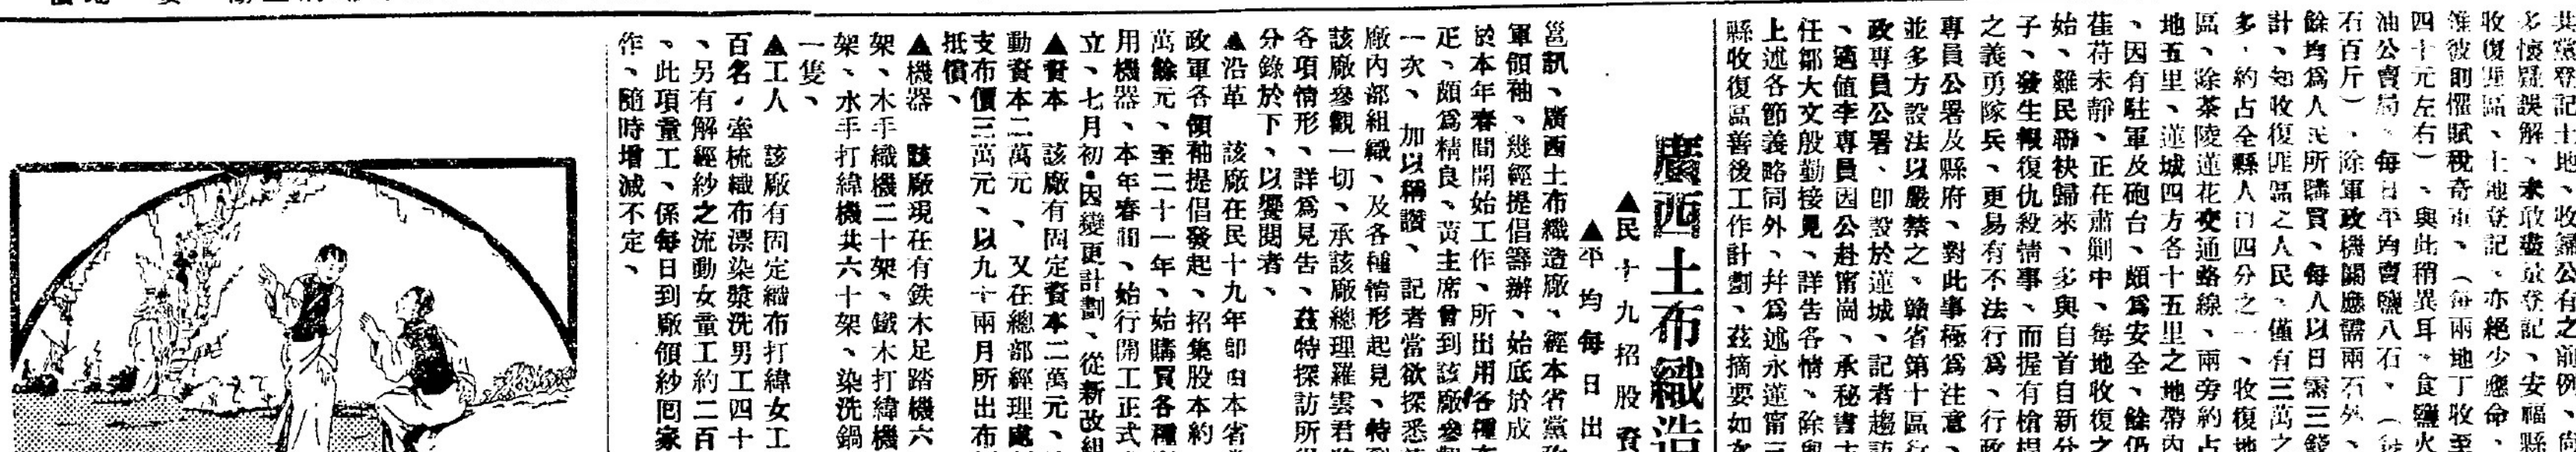 共黨登記土地、收歸公有之前例、
多懷疑誤解、未敢盡量登記、安福縣
收復匪區、土地登記、亦絕少應命、
惟彼則懼賦稅奇重、（每兩地丁收至
四十元左右）、與此稍異耳、食鹽火
油公賣局、每日平均賣鹽八石、
石百斤）、除軍政機關應需兩石外、
餘均爲人民所購買、每人以日需三錢
計、知收復匪區之人民、僅有三萬之
多、約占全縣人口四分之一、收復地
區、除茶陵蓮花交通路線、兩旁約占
地五里、蓮城四方各十五里之地帶內
、因有駐軍及砲台、頗爲安全、餘仍
萑苻未靜、正在肅剿中、每地收復之
始、難民聯袂歸來、多與自首自新分
子、發生報復仇殺情事、而握有槍桿
之義勇隊兵、更易有不法行爲、行政
專員公署及縣府、對此事極爲注意、
並多方設法以嚴禁之、贛省第十區行
政專員公署、卽設於蓮城、記者趨訪
、適值李專員因公赴甯崗、承秘書主
任鄒大文殷勤接見、詳告各情、除與
上述各節義略同外、幷爲述永蓮甯三
縣收復區善後工作計劃、茲摘要如
廣西土布織造
▲民十九招股資
▲平均每日出
邕訊、廣西土布織造廠、經本省黨政
軍領袖、幾經提倡籌辦、始底於成
於本年春間開始工作、所出用各種布
正、頗爲精良、黃主席曾到該廠參觀
一次、加以稱讚、記者當欲探悉
廠內部組織、及各種情形起見、特到
該廠參觀一切、承該廠總理羅雲君將
各項情形、詳爲見告、茲特探訪所得
分錄於下、以饗閱者、
▲沿革　該廠在民十九年卽由本省
政軍各領袖提倡發起、招集股本約
萬餘元、至二十一年、始購買各種
用機器、本年春間、始行開工正式
立、七月初、因變更計劃、從新改組
▲資本　該廠有固定資本二萬元、
動資本二萬元、又在總部經理處
支布價三萬元、以九十兩月所出布
抵償、
▲機器　該廠現在有鉄木足踏機六
架、木手織機二十架、鐵木打緯機
架、水手打緯機共六十架、染洗鍋
一隻、
▲工人　該廠有固定織布打緯女工
百名、牽梳織布漂染漿洗男工四十
、另有解經紗之流動女童工約二百
、此項童工、係每日到廠領紗囘家
作、隨時增減不定、